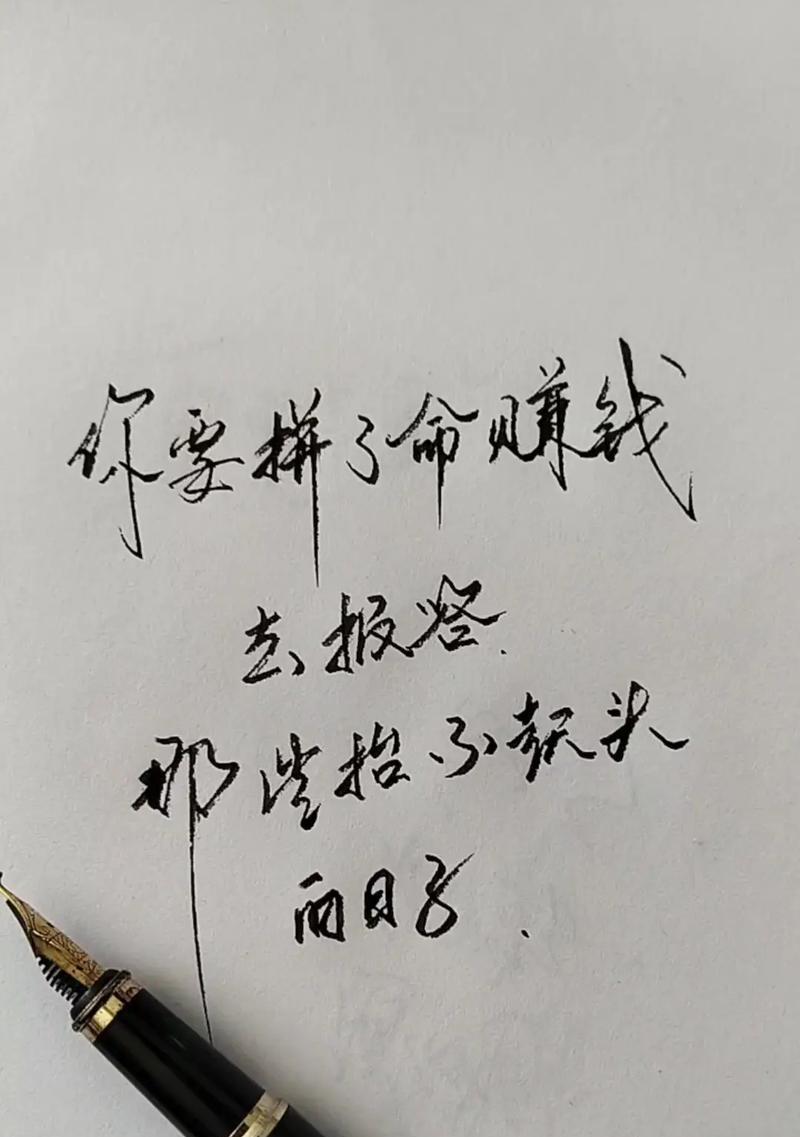 你要拼了命赚钱
去报答
那些抬不起头
的日子.